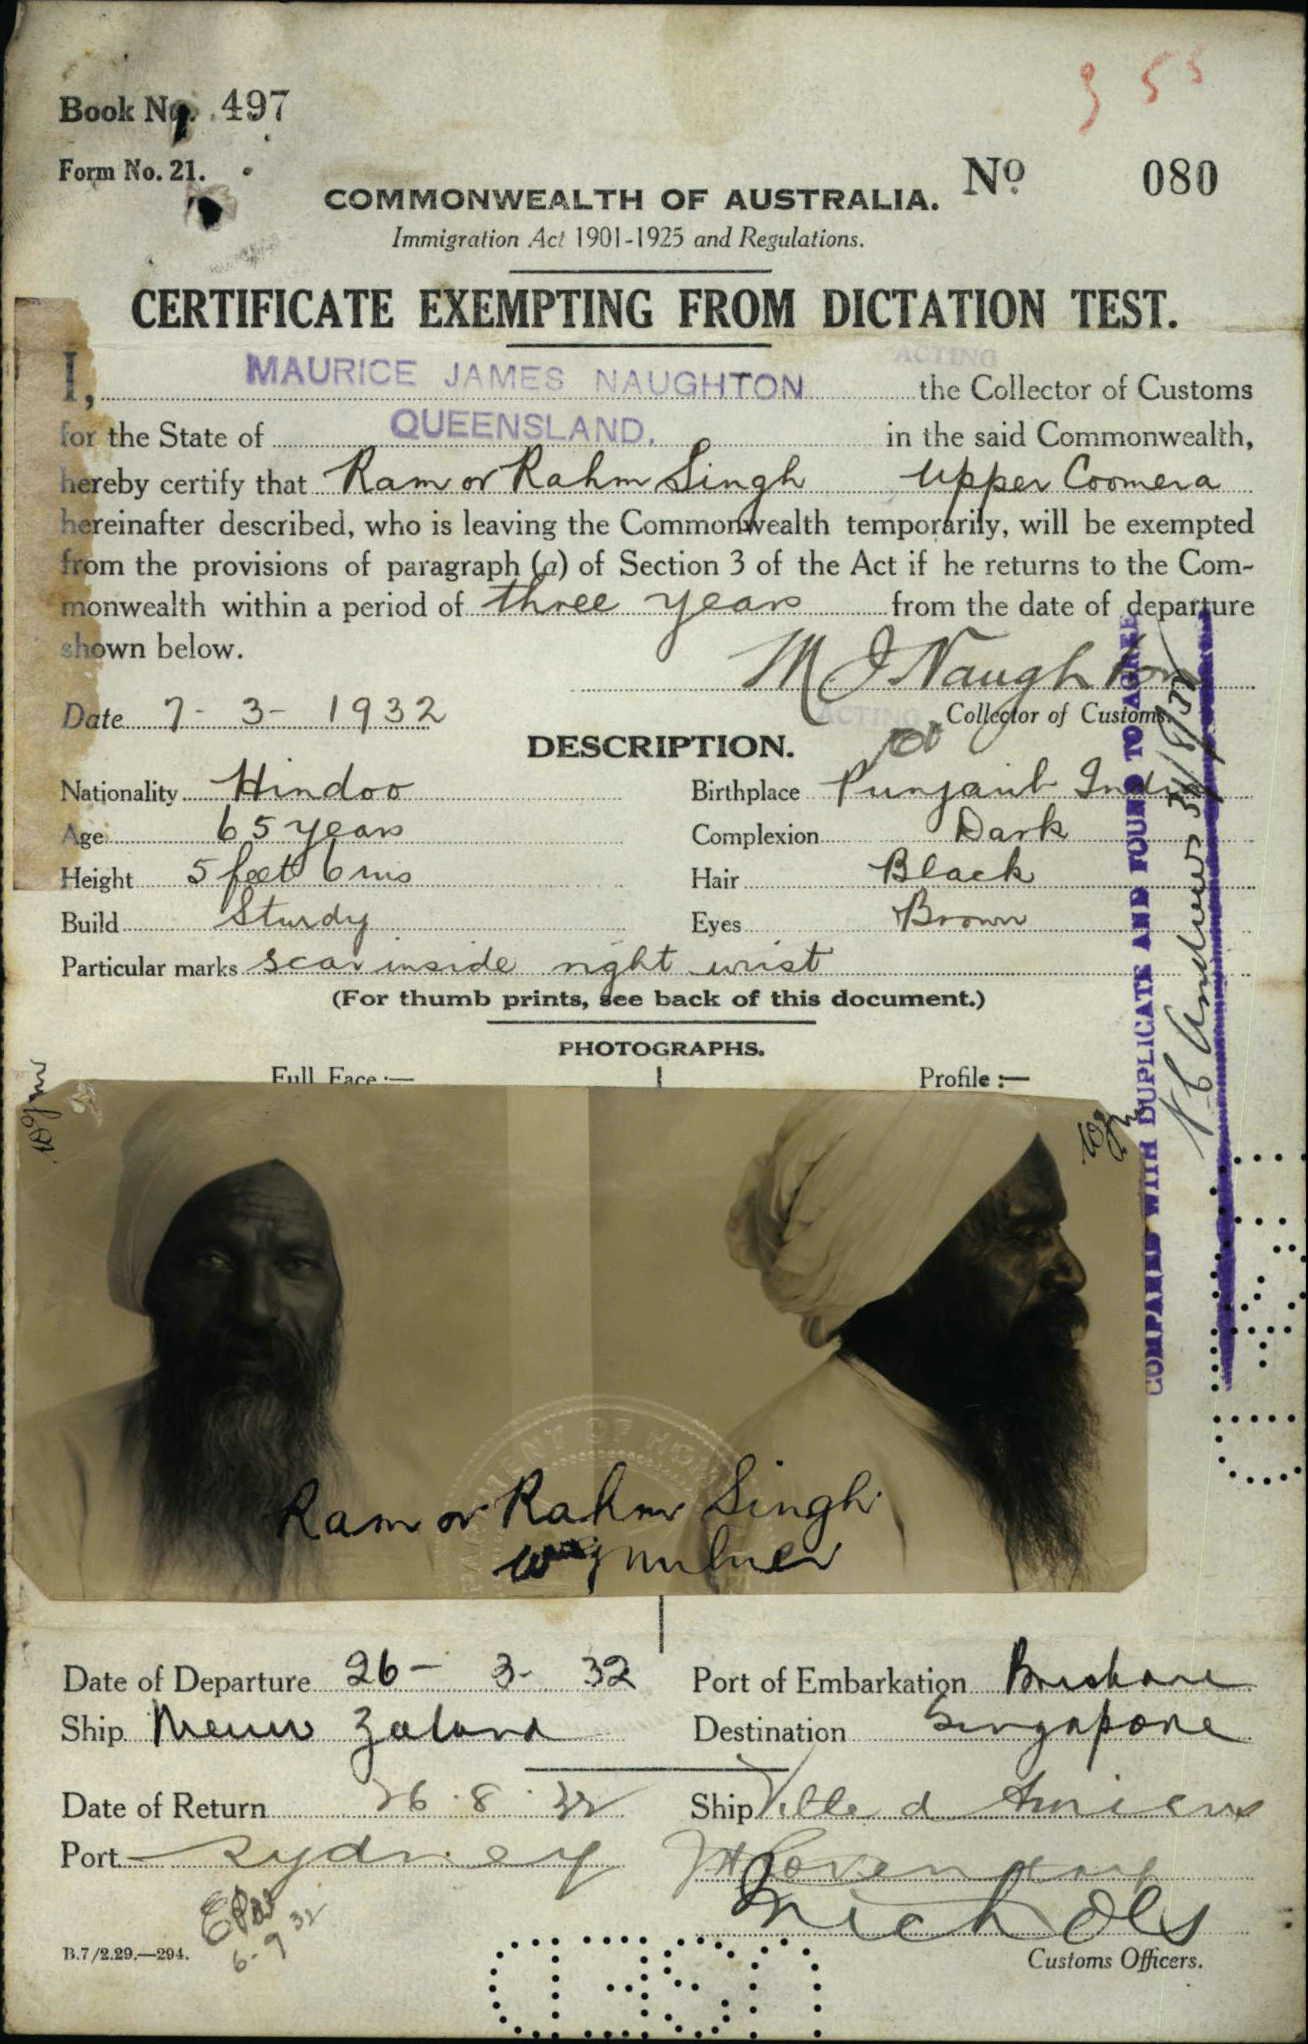 3 55
Book No. 497
Form No. 21.
No. 080
COMMONWEALTH OF AUSTRALIA.
Immigration Act 1901-1925 and Regulations.
CERTIFICATE EXEMPTING FROM DICTATION TEST.
ACTING
I, MAURICE JAMES NAUGHTON the Collector of Customs
for the State of QUEENSLAND. in the said Commonwealth,
hereby certify that Ram or Rahm Singh Upper Coomera
hereinafter described, who is leaving the Commonwealth temporarily, will be exempted
from the provisions of paragraph (a) of Section 3 of the Act if he returns to the Com-
monwealth within a period of three years from the date of departure
shown below.
M J Naughton
Date 7-3-1932
ACTING Collector of Customs.
DESCRIPTION.
Nationality Hindoo Birthplace Punjaub India
Age 65 years Complexion Dark
Height 5 feet 6 ins Hair Black
Build Sturdy Eyes Brown
Particular marks scar inside right wrist
(For thumb prints, see back of this document.)
COMPARED WITH DUPLICATE AND FOUND TO AGREE
Andrews
PHOTOGRAPHS.
Full Face :— Profile :—
Ram or Rahm Singh
Date of Departure 26- 3- 32 Port of Embarkation Brisbane
Ship Nieuw Zeland Destination Singapore
Date of Return 26.8.32 Ship Ville d Amiens
Port Sydney
Nichols
6-9 32
B.7/2.29.—294.
Customs Officers.